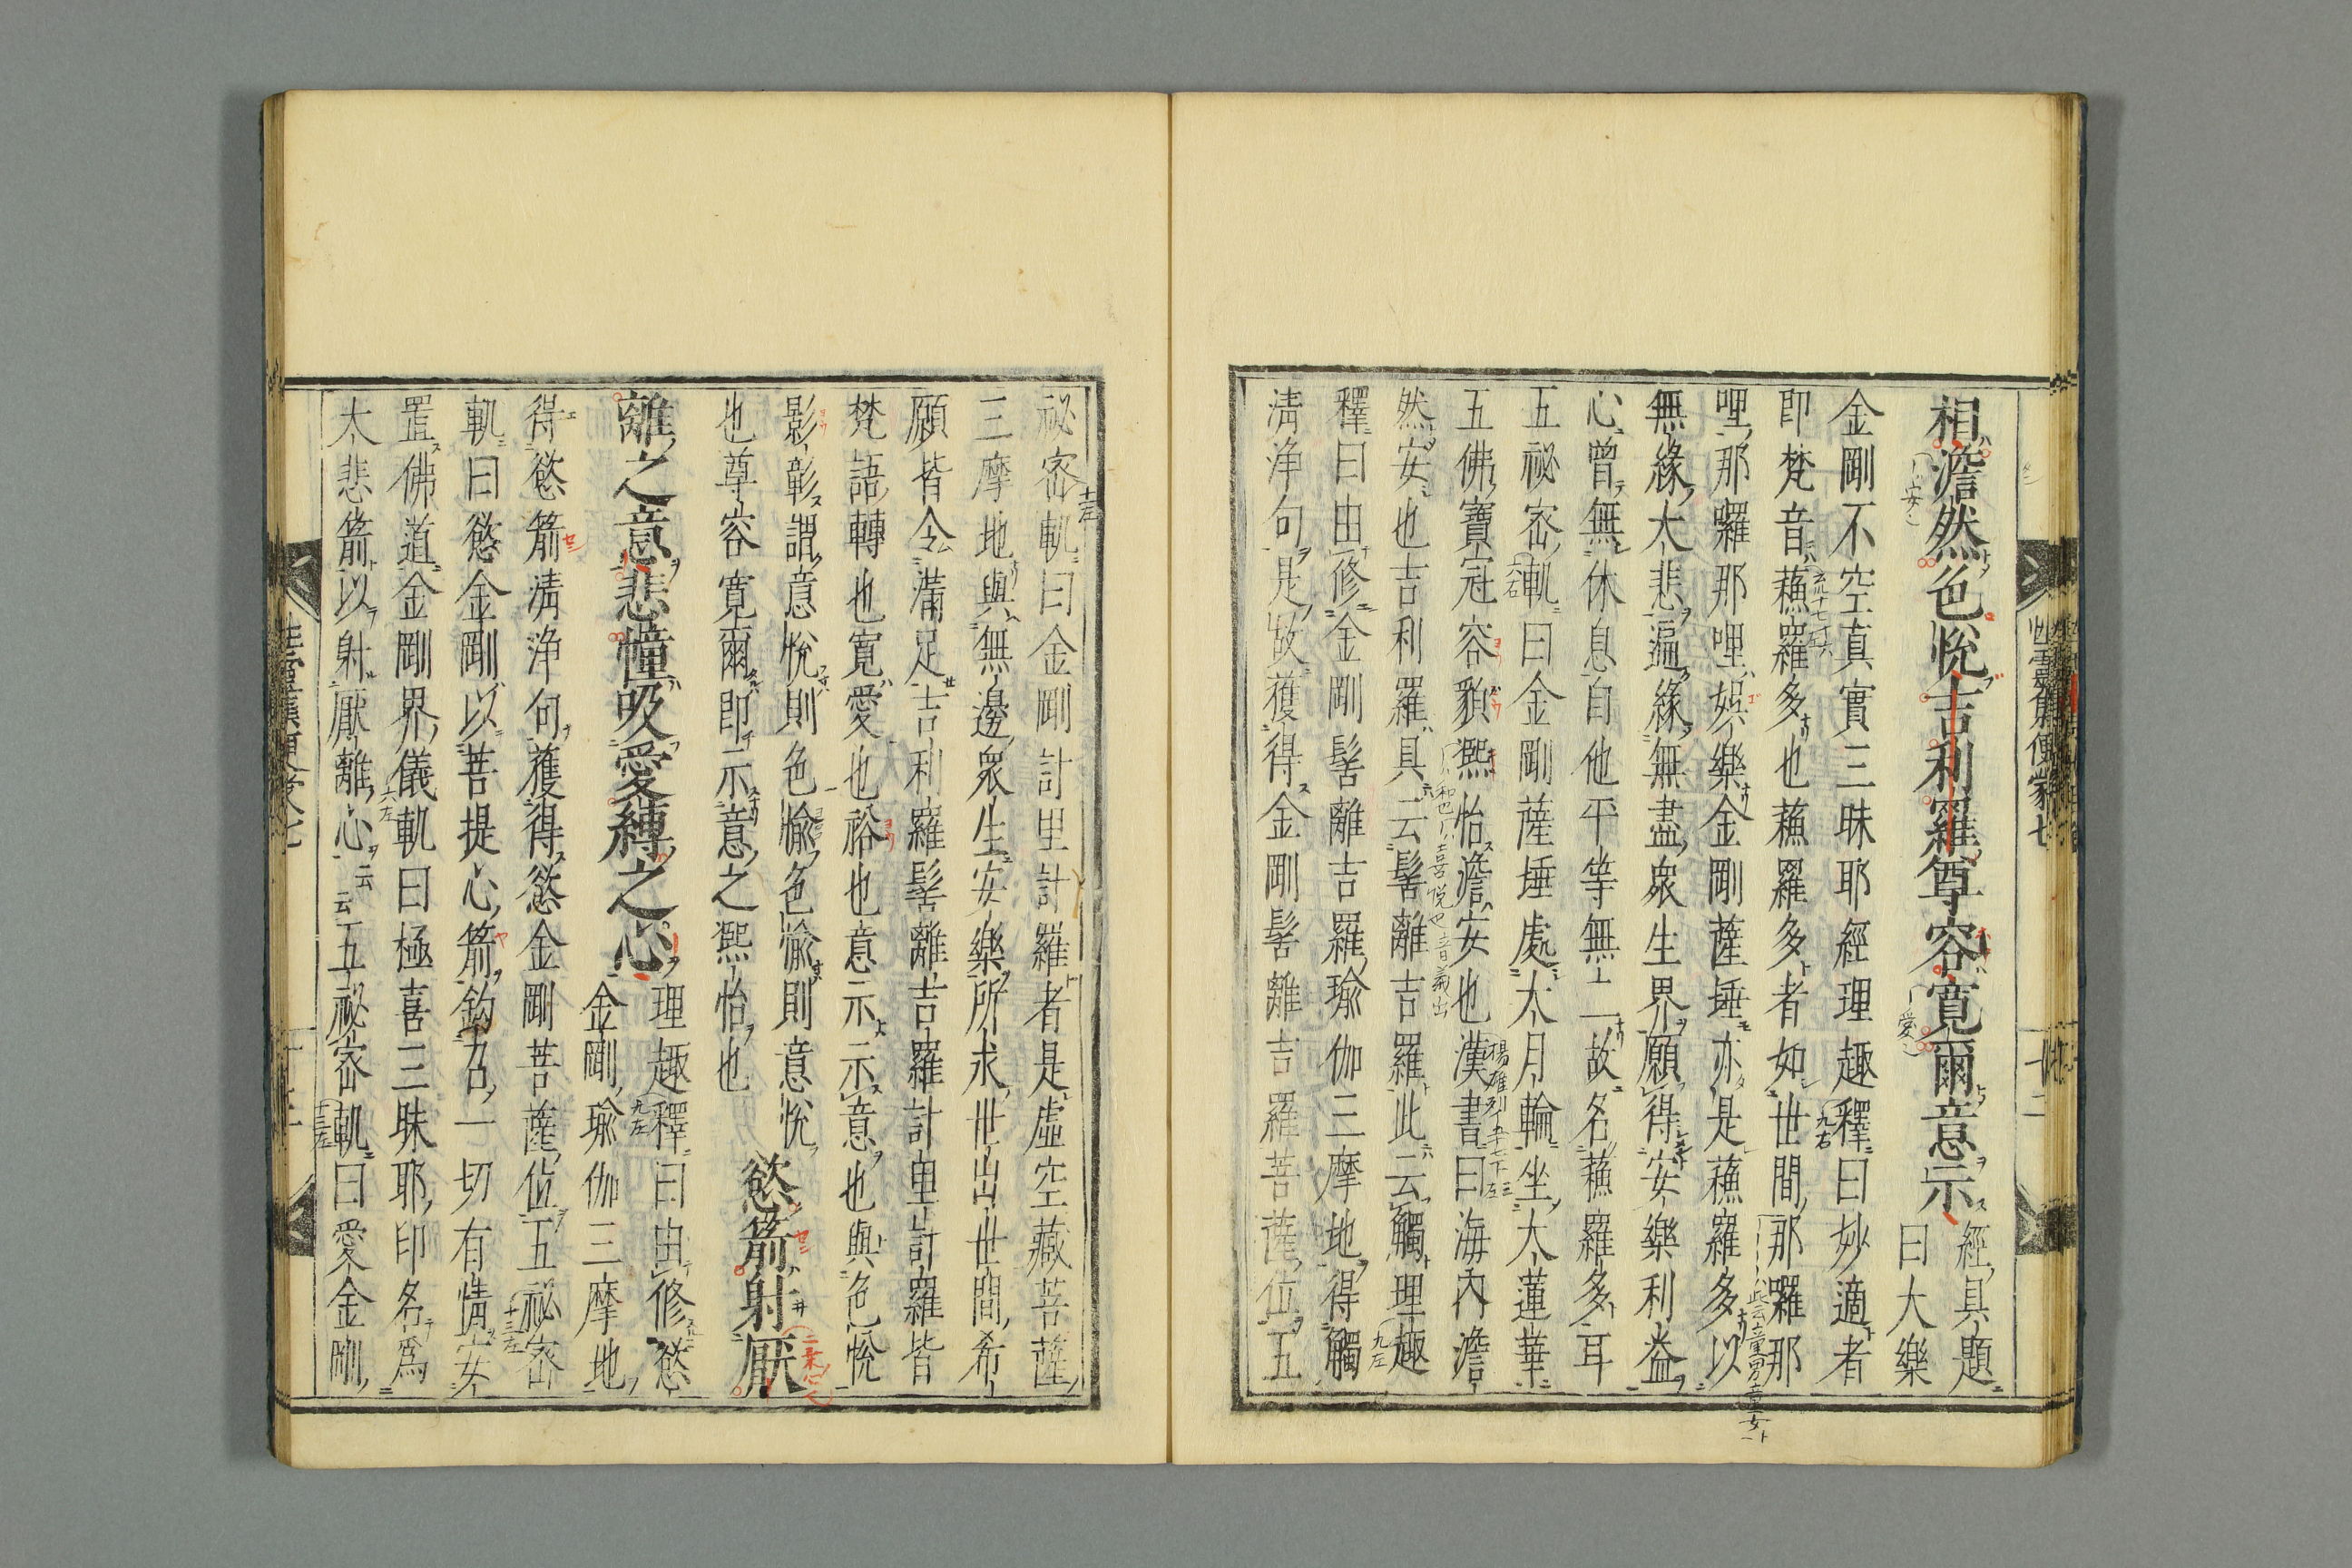 相澹然色悅吉利羅尊容寛爾意示經具題
曰大樂
金剛不空真實三昧耶經理趣釋曰妙適者
即梵音蘓羅多也蘓羅多者如世間那囉那
哩那囉那哩娯樂金剛薩埵亦是蘓羅多以
無緣大悲遍緣無盡衆生界願得安樂利益
心曾無休息自他平等無二故名蘓羅多耳
五祕宻軌曰金剛薩埵處大月輪坐大蓮華
五佛寶冠容貌熈怡澹安也漢書曰海內澹
然安也吉利羅具云髻離吉羅此云觸理趣
釋曰由修金剛髻離吉羅瑜伽三摩地得觸
淸淨句是故獲得金剛髻離吉羅菩薩位五
祕宻軌曰金剛計里計羅者是虛空藏菩薩
三摩地與無邊衆生安樂所求世出世間希
願皆令滿足吉利羅髻離吉羅計里計羅皆
梵語轉也寛愛也裕也意示示意也與色悅
影彰謂意悅則色愉色愉則意悅
也尊容寛爾即示意之熈怡也
慾箭射厭
離之意悲憧吸愛縛之心理趣釋曰由修慾
金剛瑜伽三摩地
得慾箭淸淨句獲得慾金剛菩薩位五祕宻
軌曰慾金剛以菩提心箭鈎召一切有情安
置佛道金剛界儀軌曰極喜三昧耶印名爲
大悲箭以射厭離心云云五祕宻軌曰愛金剛